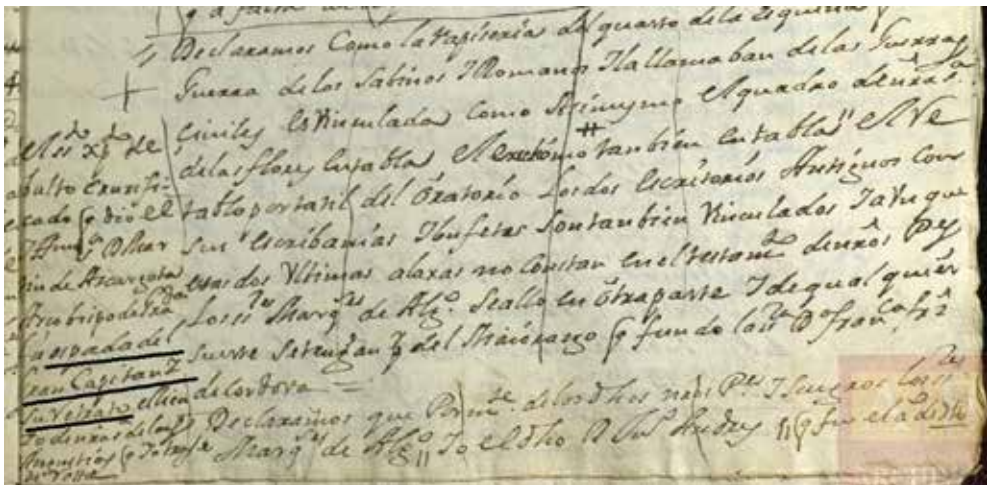 Declaramos Como la tapiseria del quarto de la esquina
Guerra de los Sabinos I Romanos I la llamaban de las Guerras
Civiles es Vinculada Como Asimysmo el quadro de nra sa
de las flores en tabla el también en tabla El Re
tablo portatil del Oratorio Los dos Escritorios Antiguos Con
sus Escribanias I bufetes son tanbien Vinculados I aunque
estas dos Ultimas alaxas no Constan en el testamto de nros
Los ssres Marqes de Algo. Se allo en otra parte I de qualquier
suerte se tengan del Maiorazgo q fundo la sra Da franca frz
de Cordova =
Declaramos que Por mte. de los dhos nros Pes I Suegros Los
Marqes de Algo Io el dho Dn Juo Andres q fue el a de
El sto xpto de
bulto Crusifi
cado q dio el
Sr Dn Mar
tin de Ascargota
Arcobispo de Grada
la espada del
Gran Capitan I
su retrato el lien
so de nra sa de las
Angustias